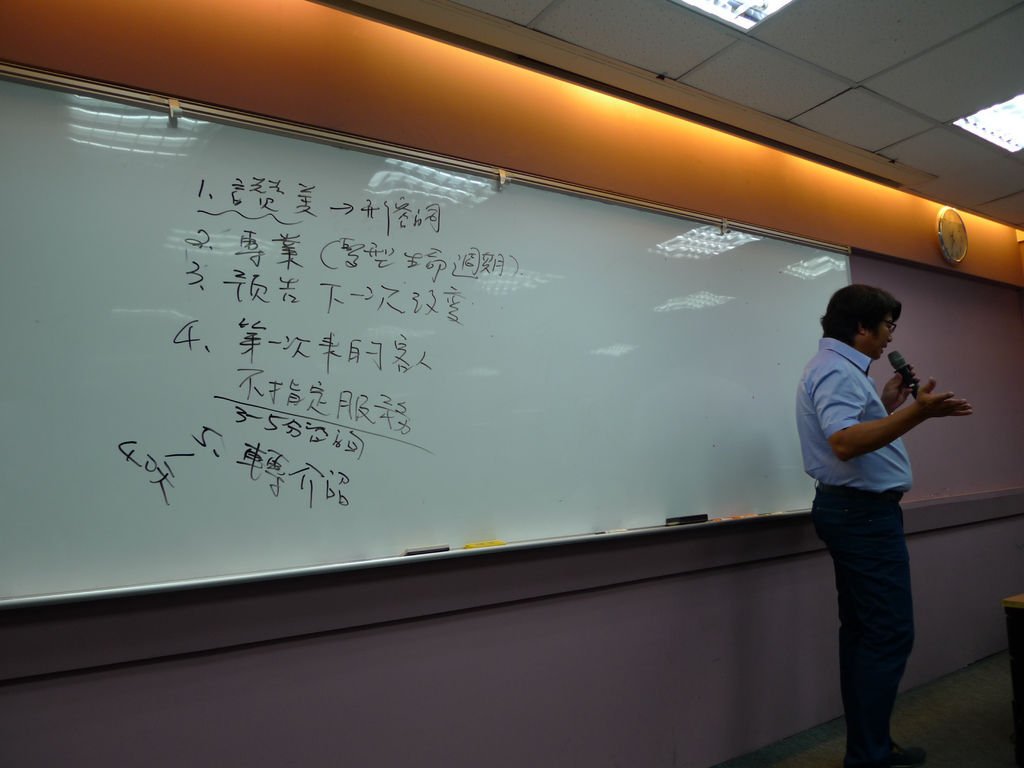 1. 讚美 → 形容詞
2. 專業 (髮型生命週期).
3. 預告 下一次改變
4. 第一次來的客人
不指定服務
3-5分鐘的
40天 — 5. 轉介紹